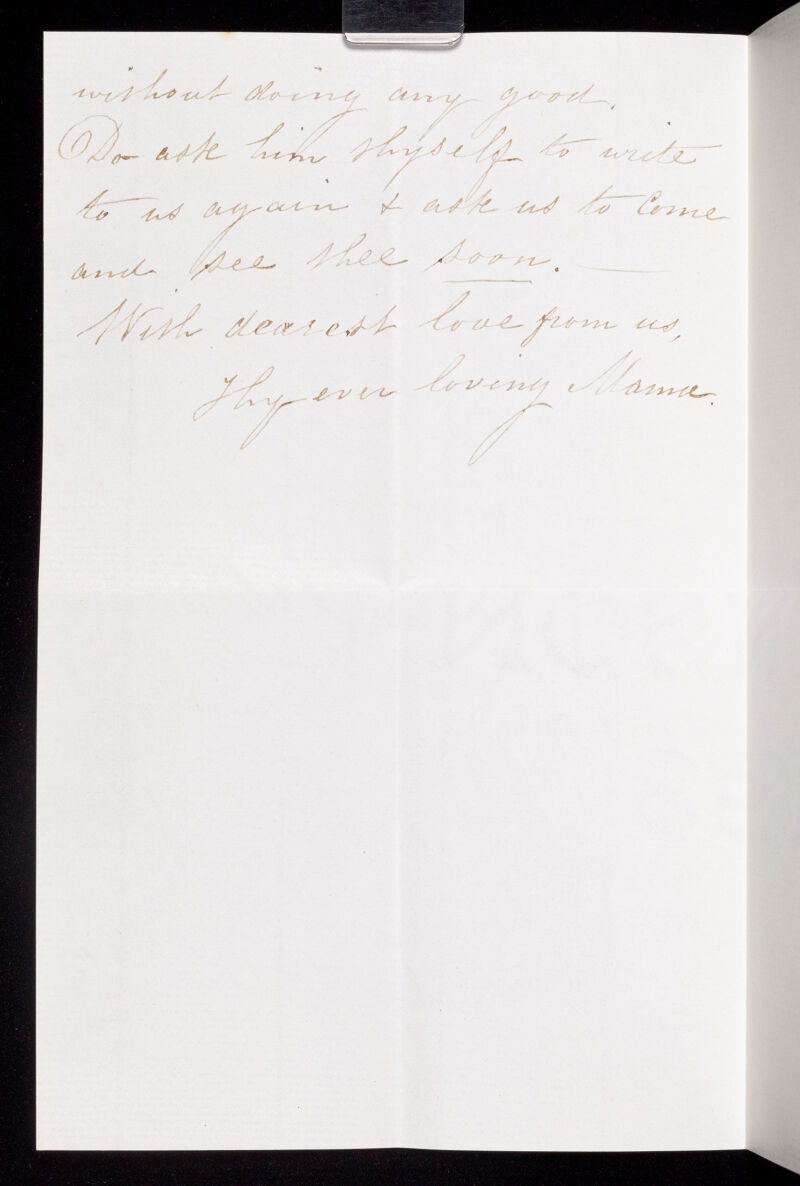 without doing any good.
Do ask him thyself to write
to us again & ask us to Come
and see thee soon. —
With dearest love from us,
Thy ever loving Mama.